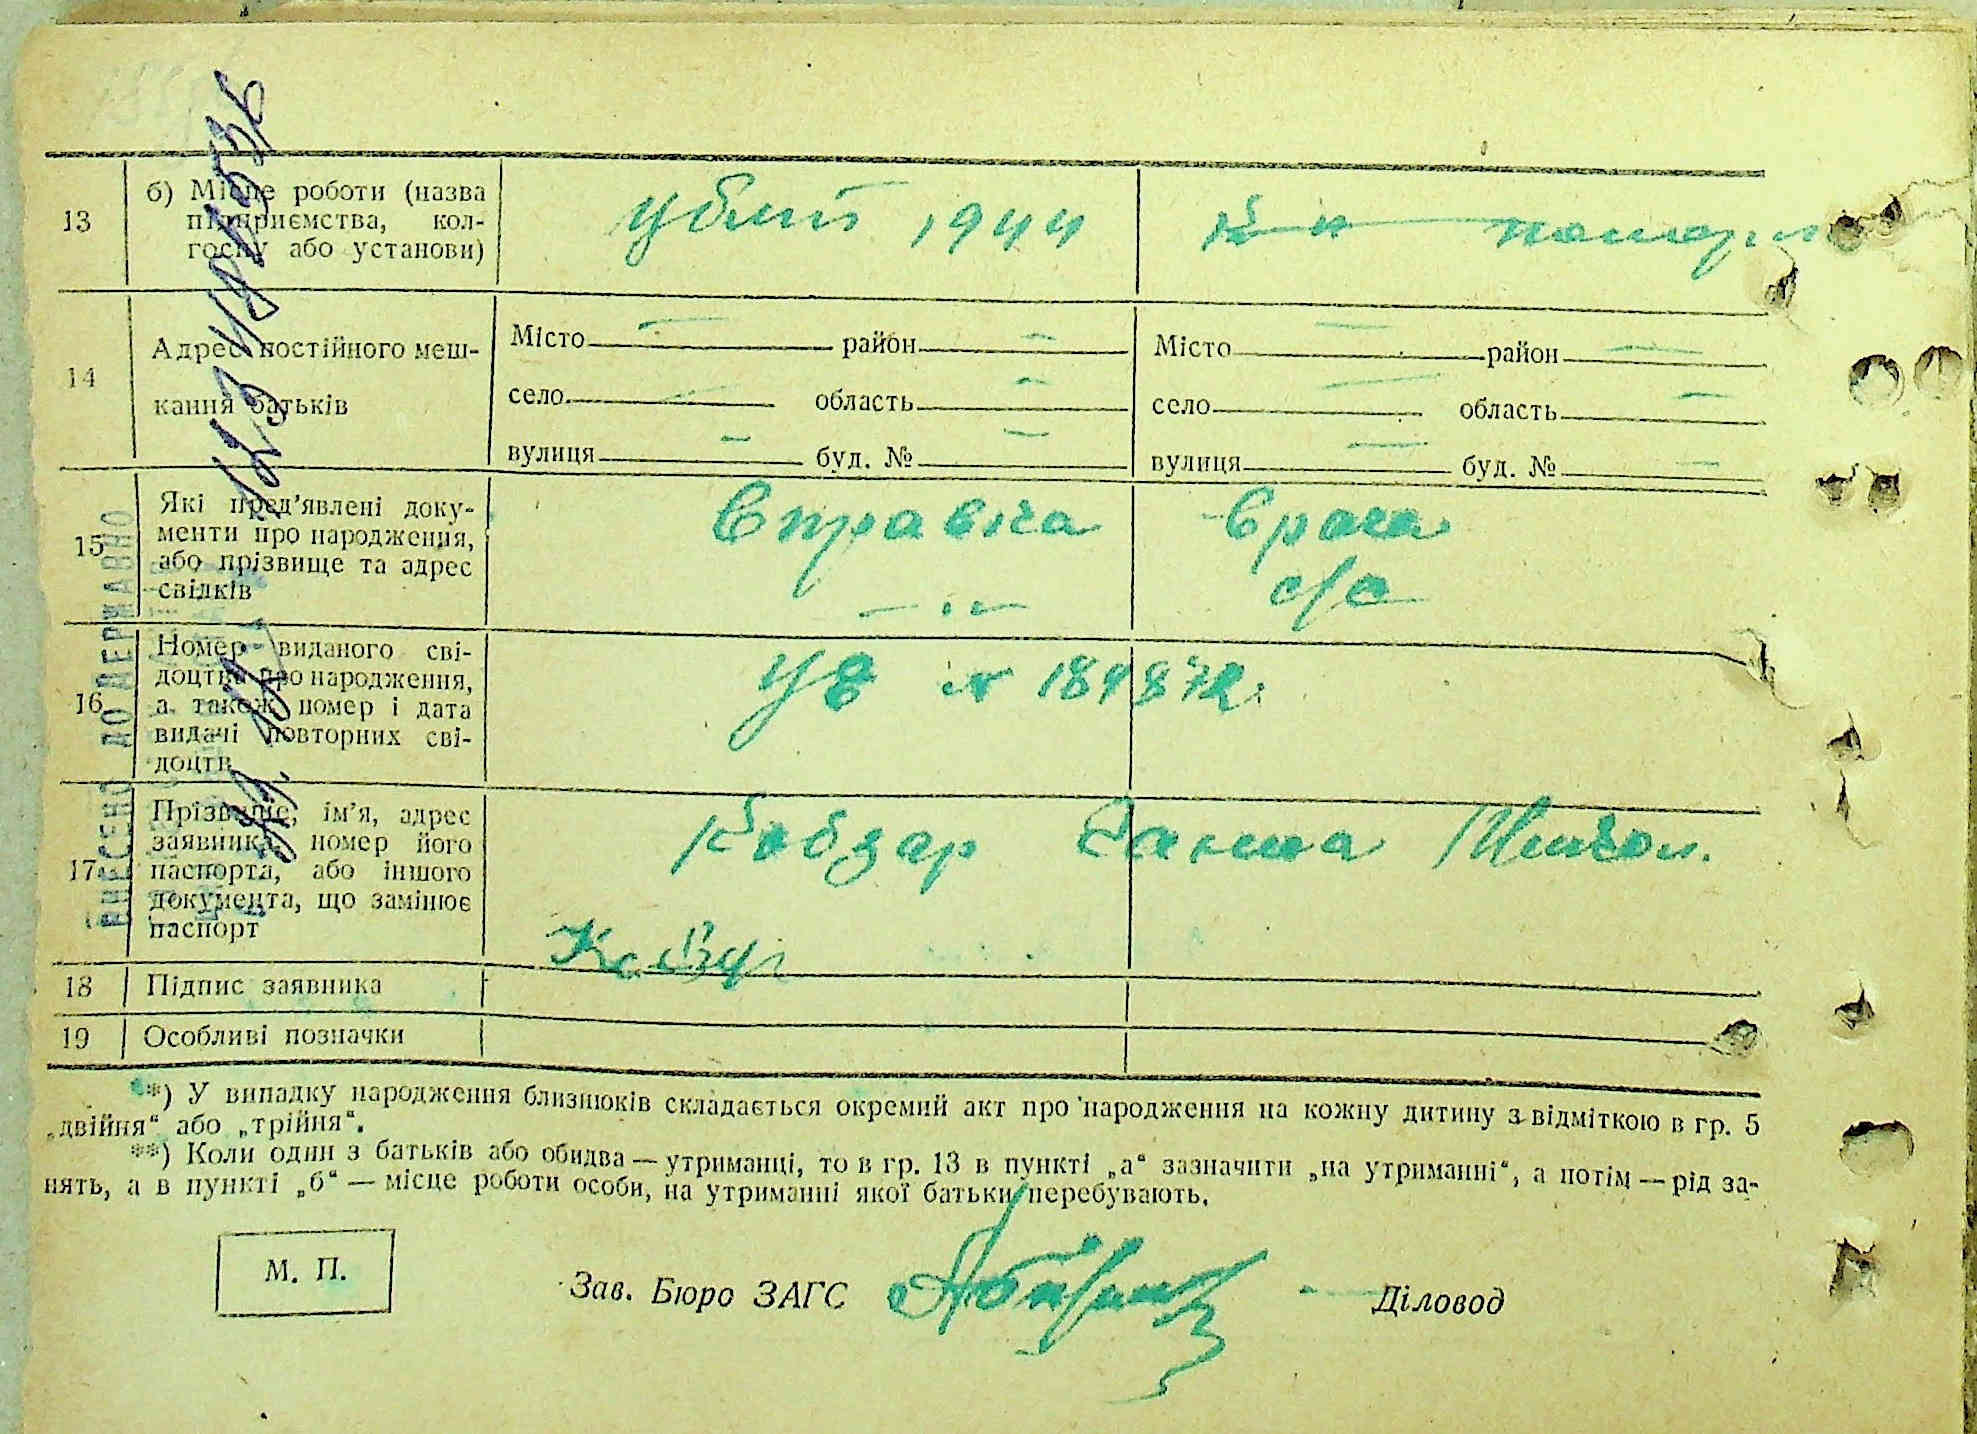 13
б) Місце роботи (назва
підприємства, кол-
госпу або установи)
убит 1944
14
Адрес постійного меш-
кання батьків
Місто — район —
село — область —
вулиця — буд. № —
Місто — район —
село — область —
вулиця — буд. № —
15
Які пред'явлені доку-
менти про народження,
або прізвище та адрес
свідків
Справка врача
— „ — с/с
16
Номер виданого сві-
доцтва про народження,
а також номер і дата
видачі повторних сві-
доцтв
№ 184872
17
Прізвище, ім'я, адрес
заявника, номер його
паспорта, або іншого
документа, що замінює
паспорт
Кобзар Ганна
18 Підпис заявника
19 Особливі позначки
**) У випадку народження близнюків складається окремий акт про народження на кожну дитину з відміткою в гр. 5
„двійня“ або „трійня“.
**) Коли один з батьків або обидва — утриманці, то в гр. 13 в пункті „а“ зазначити „на утриманні“, а потім — рід за-
нять, а в пункті „б“ — місце роботи особи, на утриманні якої батьки перебувають.
М. П.
Зав. Бюро ЗАГС
Діловод
ВНЕСЕНО ДО ДЕРЖАВНО